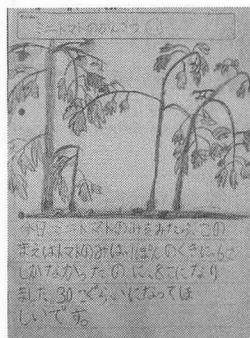 ミニトマトのかんさつ
今日ミニトマトのみをみたら、この
まえはトマトのみは、1ぽんのくきに、6こ
しかなかったのに、8こになり
ました。30こぐらいになってほ
しいです。